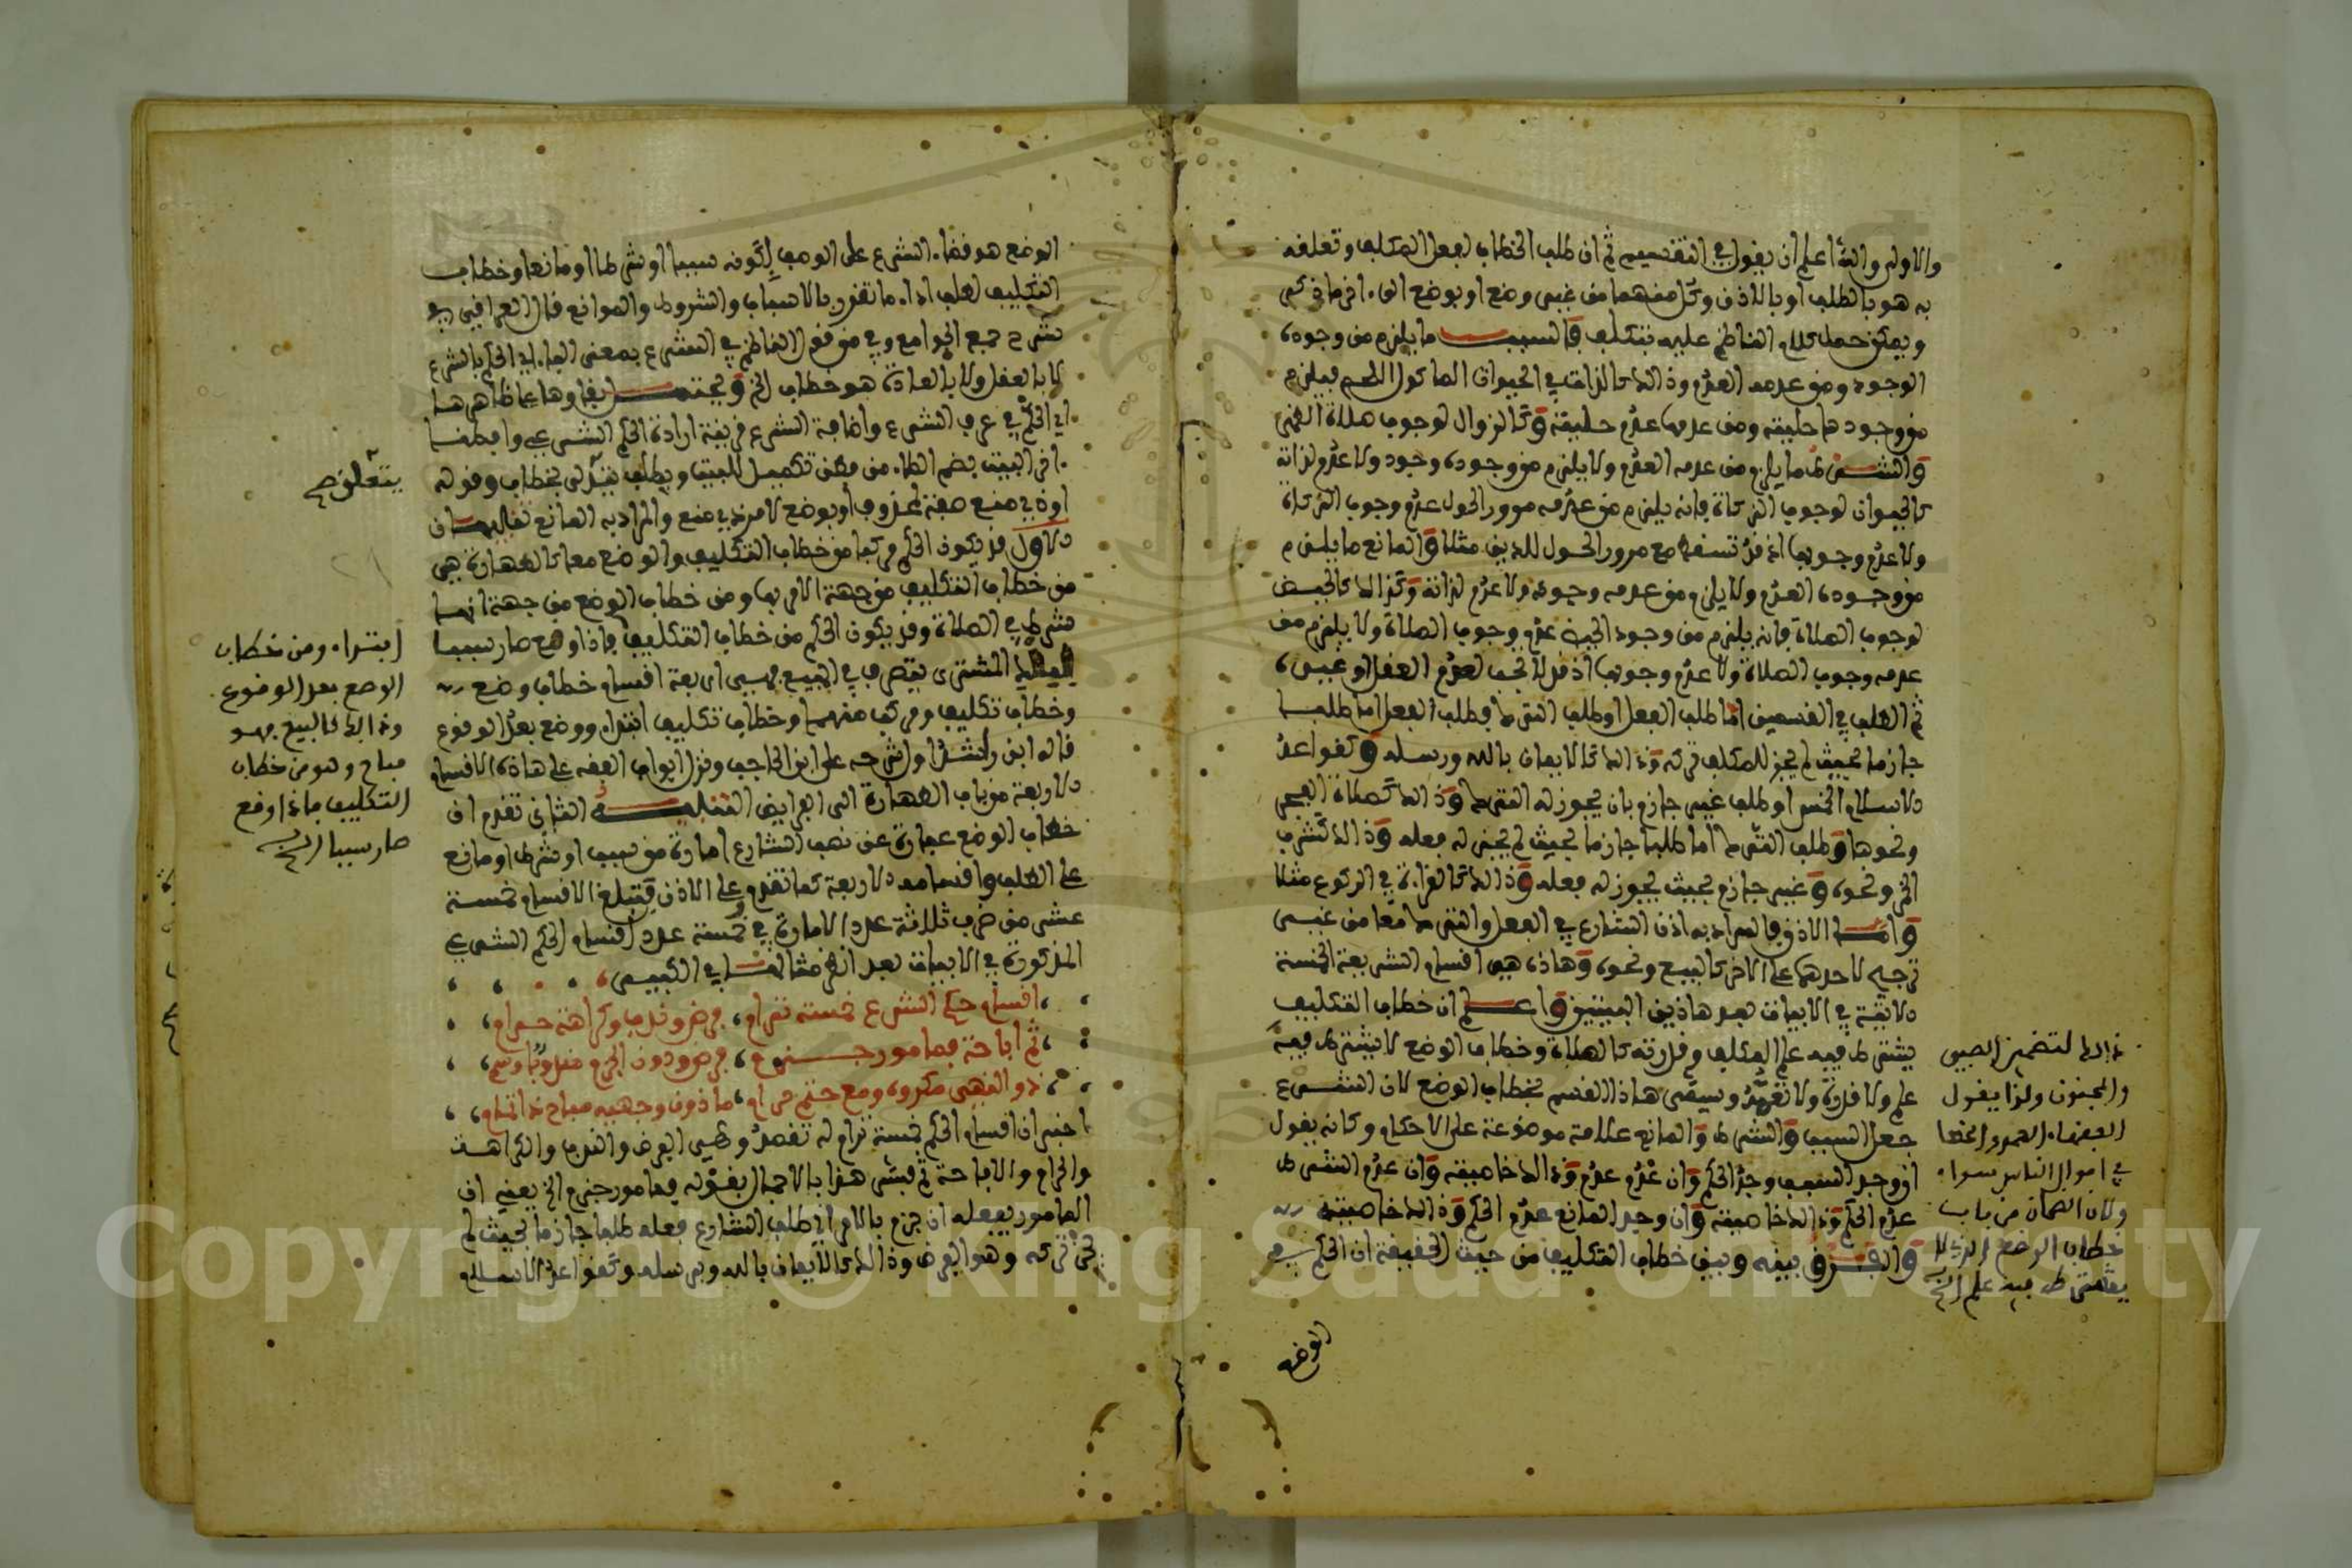 والاولى والله اعلم ان يقول في التقسيم ثم ان طلب الخطاب لفعل المكلف وتعلقه
به هو بالطلب او بالاذن وكل منهما من غير وضع او بوضع الى اخر ما ذكر
ويمكن حمل كلام الناظم عليه بتكلف فالسبب ما يلزم من وجوده
الوجود ومن عدمه العدم وذالك كالذكاة في الحيوان الماكول اللحم فيلزم
من وجودها حليته ومن عدمها عدم حليته وكالزوال لوجوب صلاة الظهر
والشرط ما يلزم من عدمه العدم ولا يلزم من وجوده وجود ولا عدم لذاته
كالحول لوجوب الزكاة فانه يلزم من عدم مرور الحول عدم وجوب الزكاة
ولا عدم وجوبها اذ قد تسقط مع مرور الحول للدين مثلا والمانع ما يلزم
من وجوده العدم ولا يلزم من عدمه وجود ولا عدم لذاته وذالك كالحيض
لوجوب الصلاة فانه يلزم من وجود الحيض عدم وجوب الصلاة ولا يلزم من
عدمه وجوب الصلاة ولا عدم وجوبها اذ قد لا تجب لعدم العقل او غيره
ثم الطلب في القسمين اما طلب الفعل او طلب الترك فطلب الفعل اما طلبا
جازما بحيث لم يجز للمكلف تركه وذالك كالايمان بالله ورسله وكقواعد
الاسلام الخمس او طلب غير جازم بان يجوز له الترك وذالك كصلاة الفجر
ونحوها وطلب الترك اما طلبا جازما بحيث لم يجز له فعله وذالك كشرب
الخمر ونحوه وغير جازم بحيث يجوز له فعله وذالك كالقراءة في الركوع مثلا
واما الاذن فالمراد به اذن الشارع في الفعل والترك معا من غير
ترجيح لاحدهما على الاخر كالبيع ونحوه وهاذه هي اقسام الشريعة الخمسة
الاتية في الابيات بعد هاذين البيتين واعلم ان خطاب التكليف
يشترط فيه علم المكلف وقدرته كالصلاة وخطاب الوضع لا يشترط فيه
علم ولا قدرة ولا تعمد وسمي هاذا القسم بخطاب الوضع لان الشرع
جعل السبب والشرط والمانع علامة موضوعة على الاحكام وكانه يقول
ان وجد السبب وجد الحكم وان عدم عدم وذالك خاصيته وان عدم الشرط
عدم الحكم وذالك خاصيته وان وجد المانع عدم الحكم وذالك خاصيته
والفرق بينه وبين خطاب التكليف من حيث الحقيقة ان الحكم في
الوضع
ذالك لتضمين الصبي
والمجنون ولذا يقول
الفقهاء العمد والخطا
في اموال الناس سواء
ولان الضمان من باب
خطاب الوضع الذي لا
يشترط فيه علم الخ
الوضع هو قضاء الشرع على الوصف لكونه سببا او شرطا او مانعا وخطاب
التكليف لطلب اداء ما تقرر بالاسباب والشروط والموانع قال العراقي في
شرح جمع الجوامع وفي من قول الناظم في الشرع بمعنى الباء اي الحكم بالشرع
لا بالعقل ولا بالعادة هو خطاب الخ ويحتمل بقاوها على ظاهرها
اي الحكم في عرف الشرع واضافة الشرع قرينة ارادة الحكم الشرعي وافطنا
اخر البيت بضم الطاء من فطن تكميل للبيت وبطلب يتعلق بخطاب وقوله
او ذي منع صفة لمحذوف او بوضع لامر ذي منع والمراد به المانع تنبيهان
الاول قد يكون الحكم مركبا من خطاب التكليف والوضع معا كالطهارة فهي
من خطاب التكليف من جهة الامر بها ومن خطاب الوضع من جهة انها
شرط في الصلاة وقد يكون الحكم من خطاب التكليف فاذا وقع صار سببا
المشتري بتصرف في المبيع فهي اربعة اقسام خطاب وضع
وخطاب تكليف ومركب منهما وخطاب تكليف ابتداء ووضع بعد الوقوع
قاله ابن راشد اول شرحه على ابن الحاجب ونزل ابواب الفقه على هاذه الاقسام
الاربعة من باب الطهارة الى الفرايض التنبيه الثاني تقدم ان
خطاب الوضع عبارة عن نصب الشارع امارة من سبب او شرط او مانع
على الطلب واقسامه الاربعة كما تقدم وعلى الاذن فتبلغ الاقسام خمسة
عشر من ضرب ثلاثة عدد الامارة في خمسة عدد اقسام الحكم الشرعي
المذكورة في الابيات بعد انظر مثالها في الكبير
اقسام حكم الشرع خمسة ترام، فرض وندب وكراهة حرام
ثم اباحة فمامور جزم، فرض ودون الجزم مندوب وسم
ذو النهي مكروه ومع حتم حرام، ماذون وجهيه مباح ذا تمام
اخبر ان اقسام الحكم خمسة ترام له تقصد وهي الفرض والندب والكراهة
والحرام والاباحة ثم فسر هذا بالاجمال بقوله فمامور جزم الخ يعني ان
المامور بفعله ان جزم بالامر اي طلب الشارع فعله طلبا جازما بحيث لم
يجز تركه وهو الفرض وذالك كالايمان بالله وبرسله وكقواعد الاسلام
يتعلق صح
ابتداء ومن خطاب
الوضع بعد الوقوع
وذالك كالبيع فهو
مباح وهو من خطاب
التكليف فاذا وقع
صار سببا الخ
Copyright © King Saud University